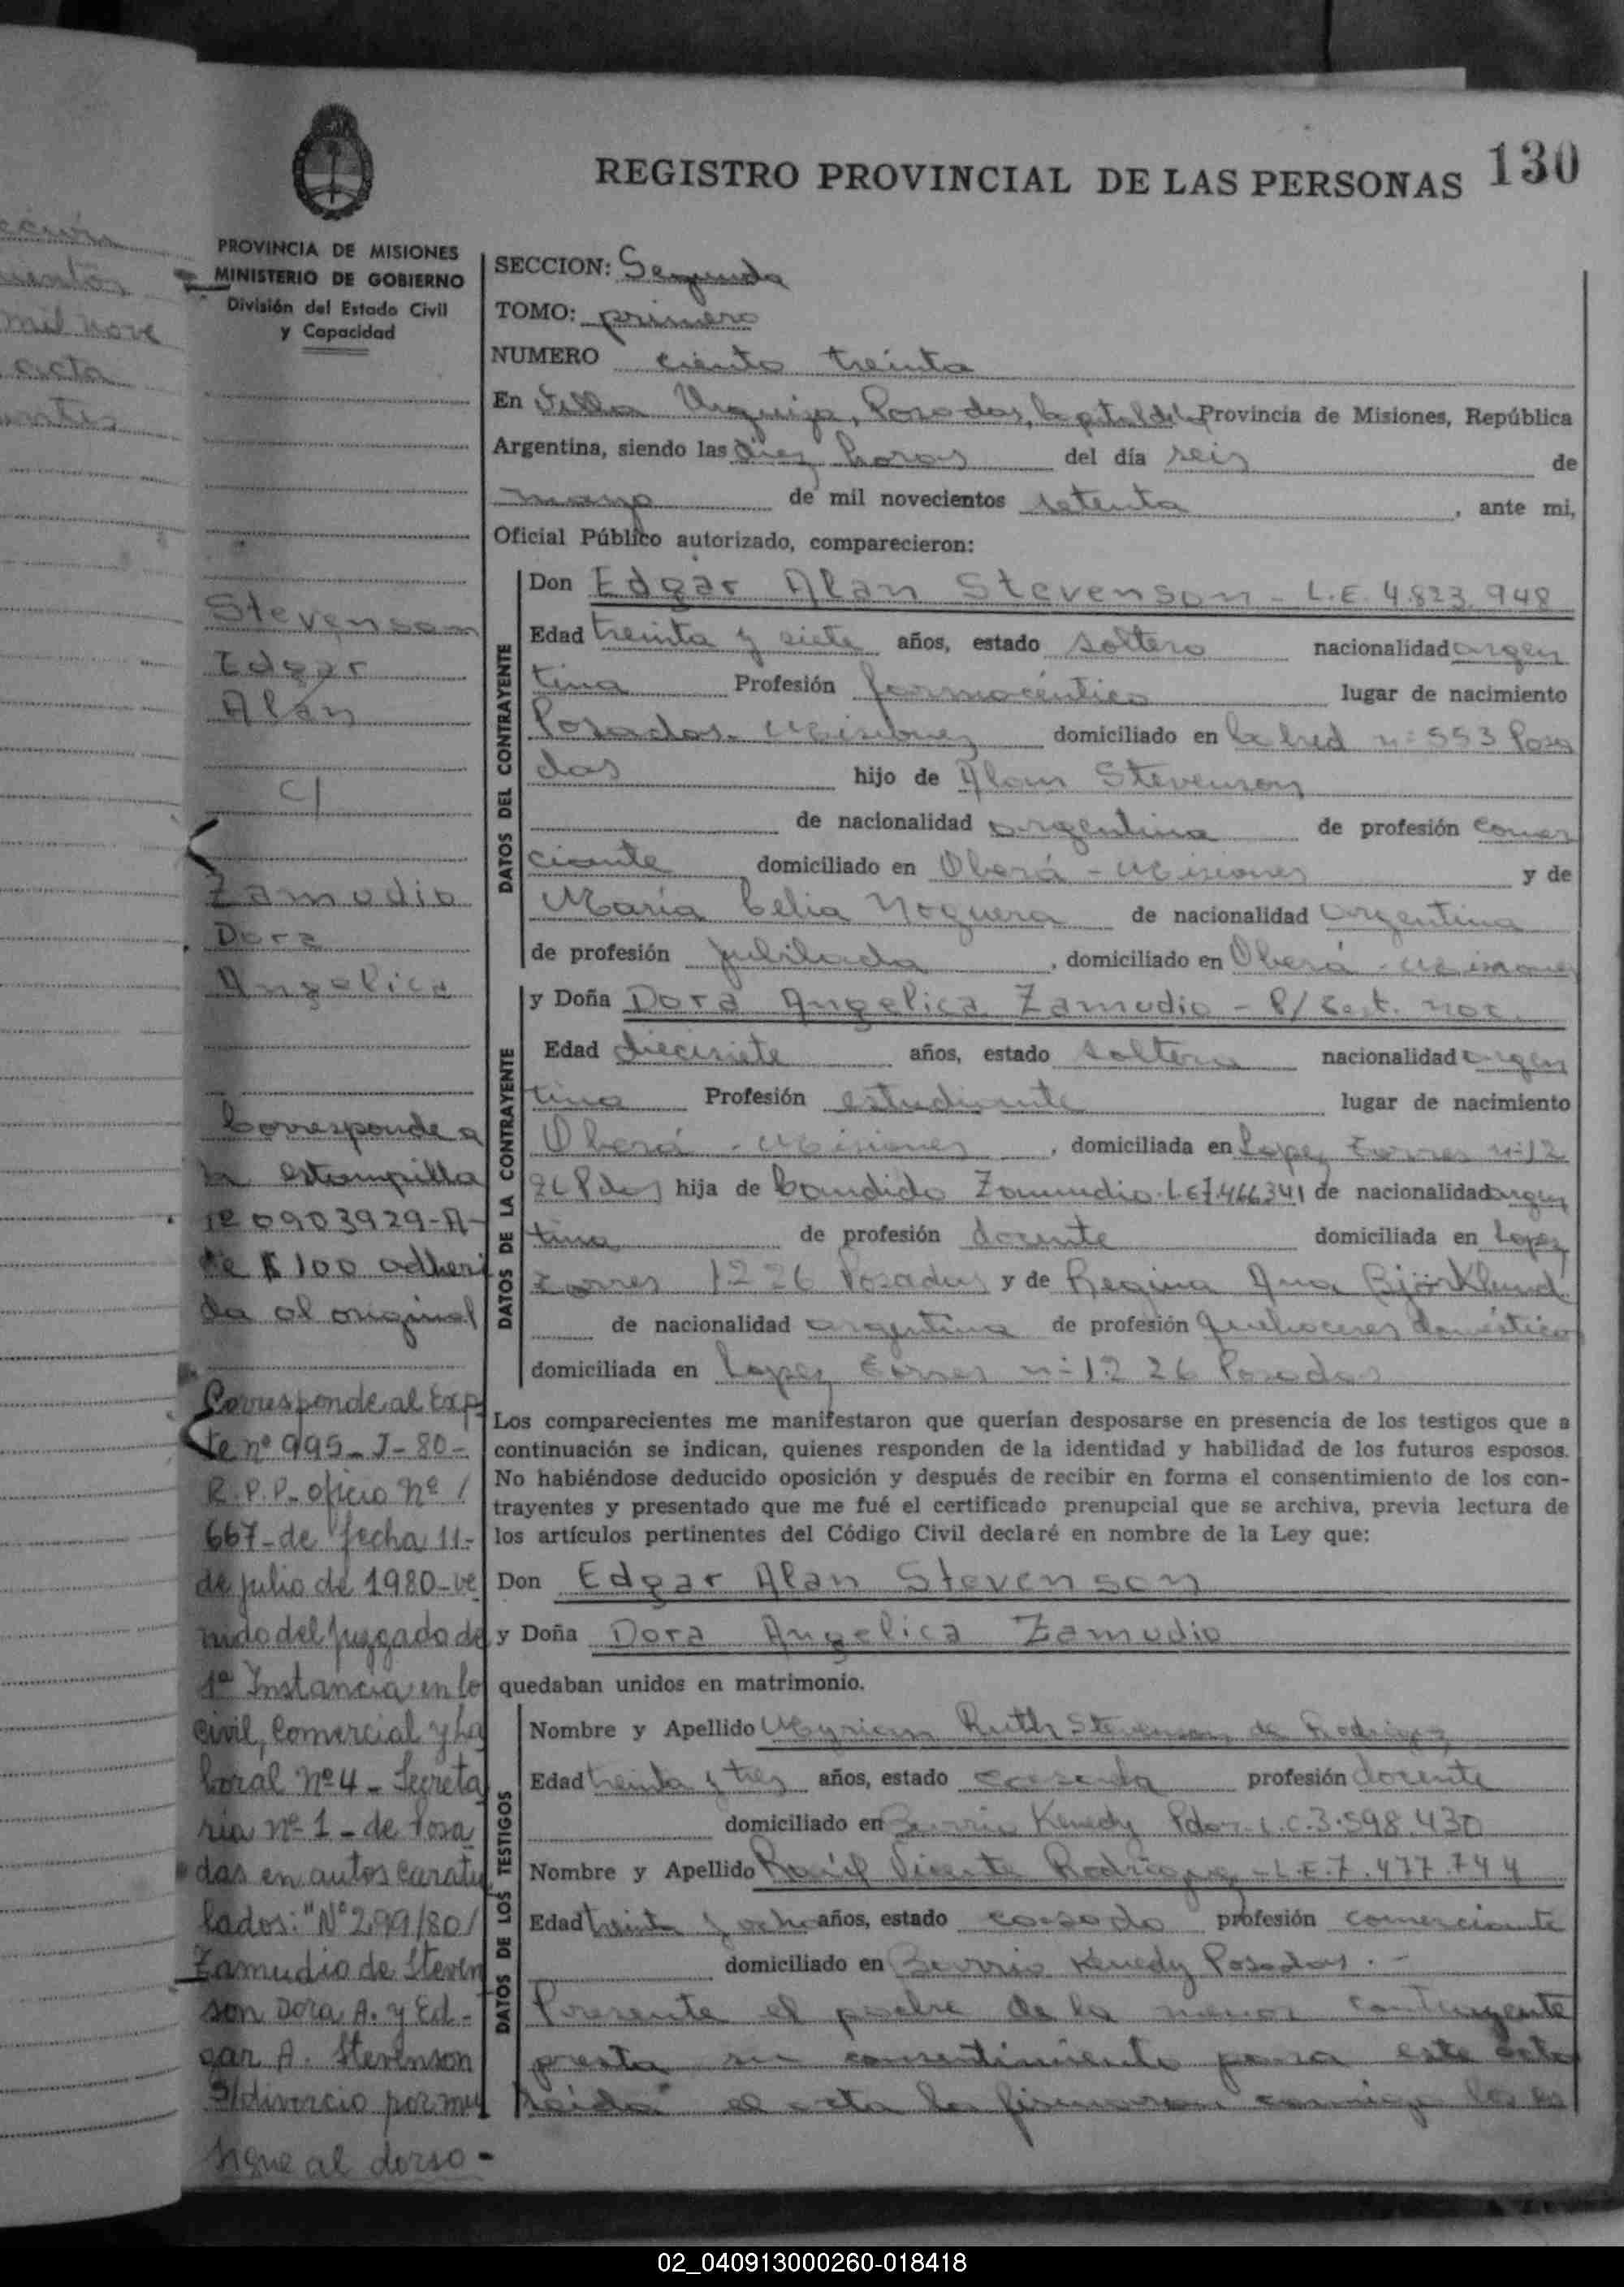 REGISTRO PROVINCIAL DE LAS PERSONAS 130
PROVINCIA DE MISIONES
MINISTERIO DE GOBIERNO
División del Estado Civil
y Capacidad
Stevenson
Edgar
Alan
c/
Zamudio
Dora
Angelica
Corresponde a
la estampilla
0903929-A-
de $ 100 adheri
da al original
Corresponde al Exp
te nº 995-J-80-
R.P.P. oficio nº 1
667-de fecha 11-
de julio de 1980-ve
nido del Juzgado de
1ª Instancia en lo
Civil, Comercial y La
boral nº 4 - Secreta
ria nº 1 - de Posa
das en autos caratu
lados: "Nº 299/80/
Zamudio de Steven
son Dora A. y Ed-
gar A. Stevenson
s/divorcio por mu
sigue al dorso -
SECCION: Segunda
TOMO: primero
NUMERO ciento treinta
En Villa Urquiza, Posadas, Capital de la Provincia de Misiones, República
Argentina, siendo las diez horas del día seis de
mayo de mil novecientos setenta , ante mi,
Oficial Público autorizado, comparecieron:
DATOS DEL CONTRAYENTE
Don Edgar Alan Stevenson - L.E. 4.823.948
Edad treinta y siete años, estado soltero nacionalidad argen
tina Profesión farmacéutico lugar de nacimiento
Posadas - Misiones domiciliado en nº 553 Posa
das hijo de Alan Stevenson
de nacionalidad argentina de profesión comer
ciante domiciliado en Oberá - Misiones y de
María Celia Noguera de nacionalidad argentina
de profesión jubilada , domiciliado en Oberá - Misiones
DATOS DE LA CONTRAYENTE
y Doña Dora Angelica Zamudio - P/ Cert. nac.
Edad diecisiete años, estado soltera nacionalidad argen
tina Profesión estudiante lugar de nacimiento
Oberá - Misiones , domiciliada en Lopez Torres nº 12
26 Pdas hija de Candido Zamudio L.E 7.466341 de nacionalidad argen
tina de profesión docente domiciliada en Lopez
Torres 1226 Posadas y de Regina Ana Björklund
de nacionalidad argentina de profesión quehaceres domésticos
domiciliada en Lopez Torres nº 1226 Posadas
Los comparecientes me manifestaron que querían desposarse en presencia de los testigos que a
continuación se indican, quienes responden de la identidad y habilidad de los futuros esposos.
No habiéndose deducido oposición y después de recibir en forma el consentimiento de los con-
trayentes y presentado que me fué el certificado prenupcial que se archiva, previa lectura de
los artículos pertinentes del Código Civil declaré en nombre de la Ley que:
Don Edgar Alan Stevenson
y Doña Dora Angelica Zamudio
quedaban unidos en matrimonio.
DATOS DE LOS TESTIGOS
Nombre y Apellido Myrian Ruth Stevenson de Rodriguez
Edad treinta y tres años, estado casada profesión docente
domiciliado en Barrio Kenedy Pdas - L.C. 3.598.430
Nombre y Apellido Raúl Vicente Rodriguez - L.E. 7.477.744
Edad treinta y ocho años, estado casado profesión comerciante
domiciliado en Barrio Kenedy Posadas . -
Presente el padre de la menor contrayente
presta su consentimiento para este acto
Leida el acta la firmaron conmigo los es
02_040913000260-018418